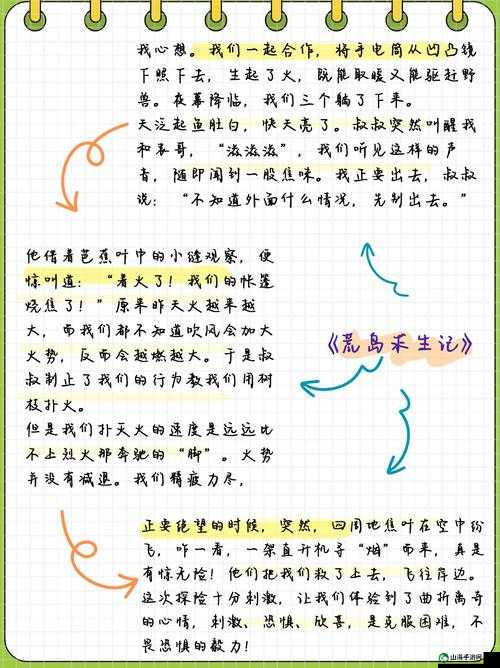 我心想。我们一起合作，将手电筒从凹凸镜
下照下去，生起了火，既能取暖又能驱赶野
兽。夜幕降临，我们三个躺了下来。
天泛起鱼肚白，快天亮了。叔叔突然叫醒我
和表哥，“滋滋滋”，我们听见这样的声
音，随即闻到一股焦味。我正要出去，叔叔
说：“不知道外面什么情况，先别出去。”
他借着芭蕉叶中的小缝观察，便
惊叫道：“着火了！我们的帐篷
烧焦了！”原来昨天火越来越
大，而我们都不知道吹风会加大
火势，反而会越燃越大。于是叔
叔制止了我们的行为教我们用树
枝扑火。
但是我们扑灭火的速度是远远比
不上烈火那奔驰的“脚”。火势
并没有减退。我们精疲力尽，
《荒岛求生记》
正要绝望的时候，突然，四周地焦叶在空中纷
飞，咋一看，一架直升机寻“烟”而来，真是
有惊无险！他们把我们救了上去，飞往岸边。
这次探险十分刺激，让我们体验到了曲折离奇
的心情，刺激、恐惧、欣喜，是克服困难，不
畏恐惧的毅力！
山海手游网